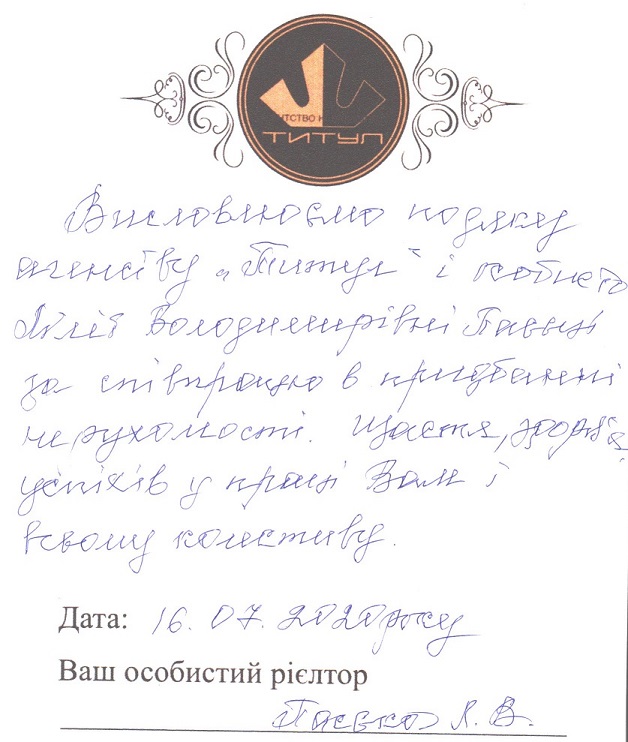 ТСТВО Н
ТИТУЛ
Висловлюємо подяку
агенству „Титул“ і особисто
Лілії Володимирівні
за співпрацю в придбанні
нерухомості. Щастя, здоров'я,
успіхів у праці Вам і
всьому колективу.
Дата: 16.07.2020 року
Ваш особистий рієлтор
Л. В.